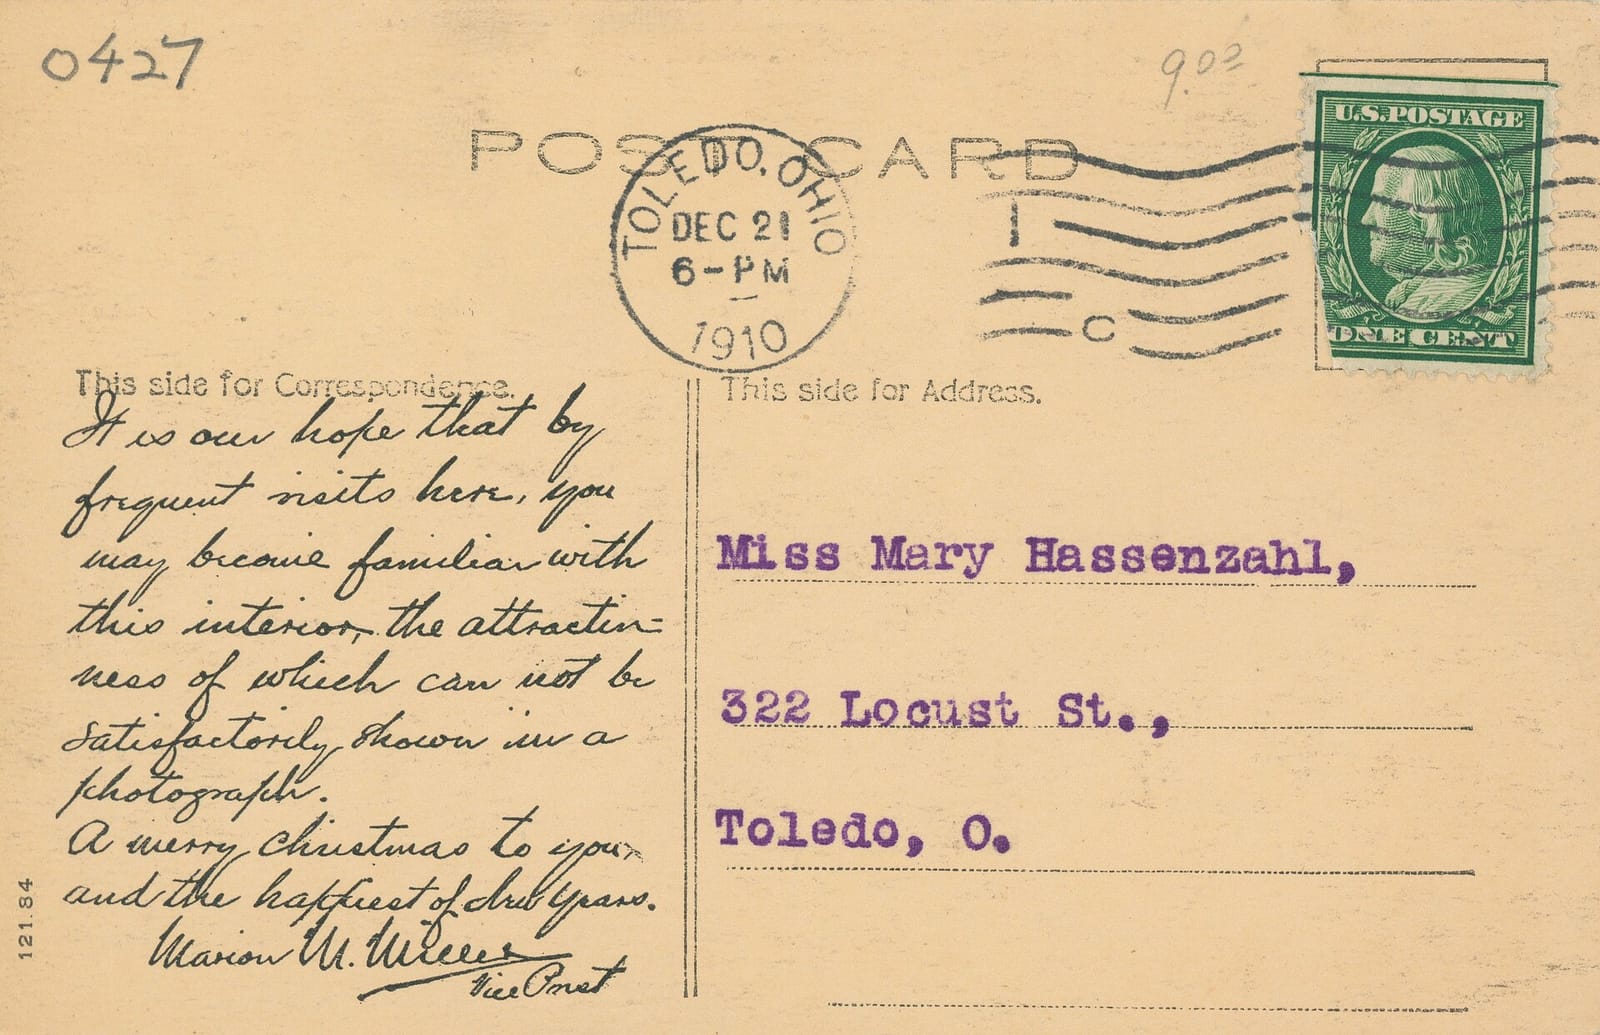 0427
9.00
POST CARD
U.S. POSTAGE
ONE CENT
TOLEDO, OHIO
DEC 21
6-PM
1910
I
C
This side for Correspondence.
It is our hope that by
frequent visits here, you
may become familiar with
this interior, the attractiv=
ness of which can not be
satisfactorily shown in a
photograph.
A merry Christmas to you,
and the happiest of New Years.
Marion M. Miller
Vice Prest
121.84
This side for Address.
Miss Mary Hassenzahl,
322 Locust St.,
Toledo, O.